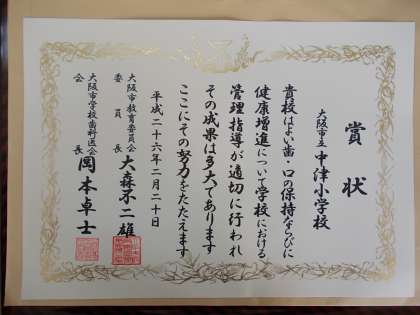 賞状
大阪市立中津小学校
貴校はよい歯・口の保持ならびに
健康増進について学校における
管理指導が適切に行われ
その成果は多大であります
ここにその努力をたたえます
平成二十六年二月二十日
大阪市教育委員会
委員長 大森不二雄
大阪市学校歯科医会
会長 岡本卓士